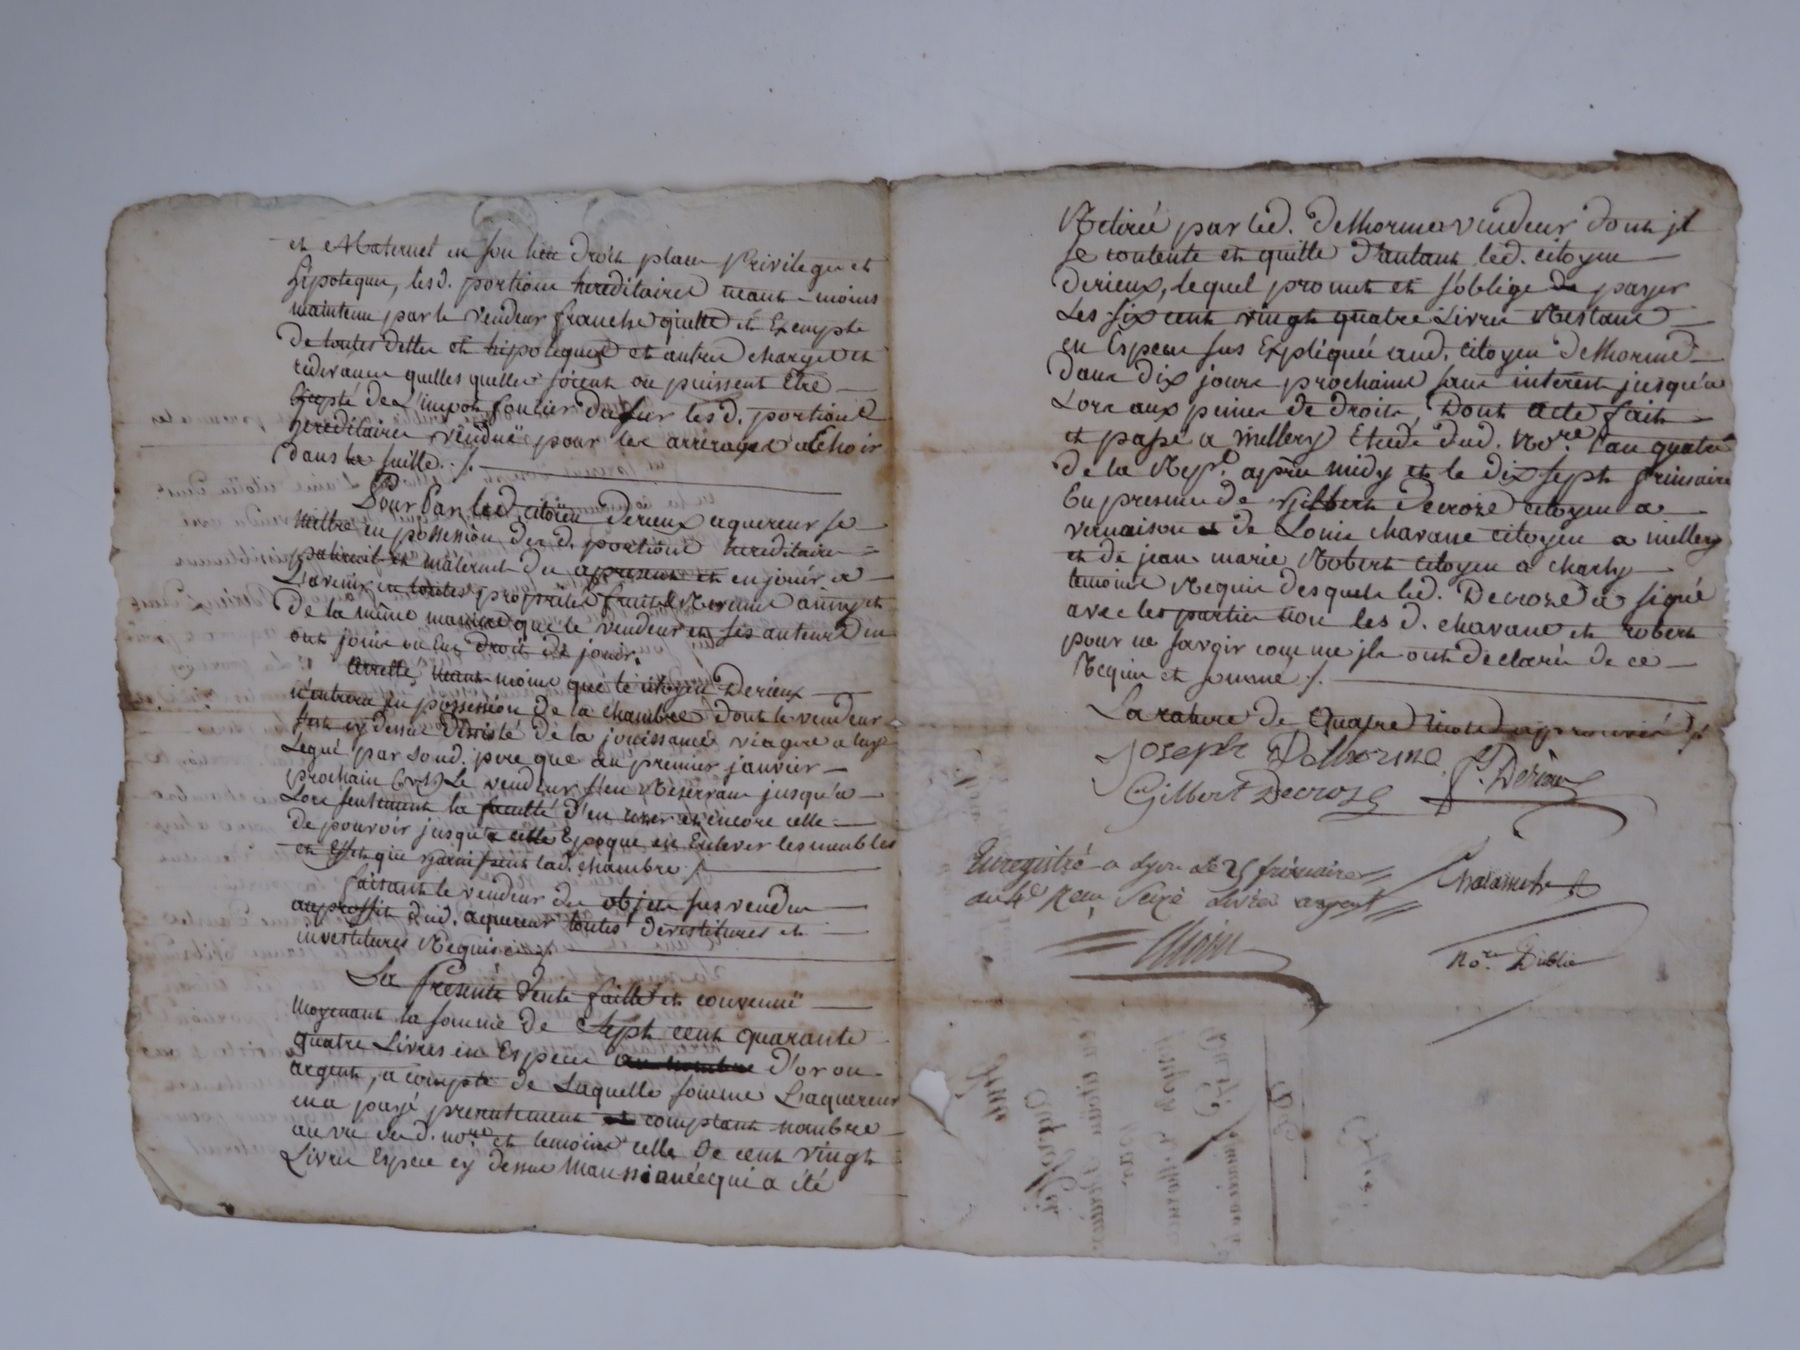 et Maternel en son lieu droit place Privilege et
hypoteque, lesd. portions hereditaires neant-moins
maintenu par le vendeur franche quitte et Exempte
de toutes dettes et hipoteques et autres charges et
redevances quelles quelles soient ou puissent Etre
Excepté de L'impot foncier du sur lesd. portions
hereditaires vendües pour les arrerages a Echoir
dans la suitte ./.
Pour Par led. citoien Derieux aquereur se
mettre en possession desd. portions hereditaires
paternel et maternel des apresent et en jouir a
L'avenir en toutes proprietés fruits Revenus ainsy et
de la même maniere que le vendeur et ses auteurs En
ont jouir ou Eu droit de jouir.
Arretté neant-moins que le citoyen Derieux
n'entrera en possession de la chambre dont le vendeur
sest cy dessus Desisté de la jouissance viagere a luy
Legué par Sond. pere que au premier janvier
prochain (v.st) Le vendeur s'en Reservant jusqu'a
Lors seulement la faculté d'en user et encore celle
de pouvoir jusqu'a cette Epoque en Enlever les meubles
et Effets qui garnissent lad. chambre ./.
faisant le vendeur des objets sus vendus
auproffit dud. aquereur toutes devestitures et
investitures Requises ./.
La Presente Vente faitte et convenuë
moyenant la somme de Sept cent quarante
quatre Livres en Espece d'or ou
argent, a compte de Laquelle somme L'aquereur
en a payé presentement comptant nombré
au vu dud. nore. et temoins celle de cent vingt
Livres Espece cy dessus Mansionnée qui a été
Retirée par led. Delhorme vendeur dont jl
se contente et quitte D'autant led. citoyen
Derieux, lequel promet et s'oblige de payer
Les Six cent vingt quatre Livres Restant
en Espece sus Expliquée aud. citoyen Delhorme
dans Dix jours prochains sans interest jusqu'a
Lors aux peines de droits, Dont acte fait
et passé a millery Etude dud. Nore. l'an quatre
de la Repe. après midy et le dix sept frimaire
En presence de gilbert Decroze citoyen a
vernaison et de Louis chavane citoyen a millery
et de jean marie Robert citoyen a charly
temoins Requis desquels led. Decroze a signé
avec les parties non les d. chavane et robert
pour ne savoir comme jls ont declarés de ce
Requis et sommé ./.
La rature de Quatre mots approuvés ./.
Joseph Delhorme P. Derieux
Gilbert Decroze
Enregistré a Lyon le 25 frimaire
an 4e Reçu Seize Livres argent
Nore. Public